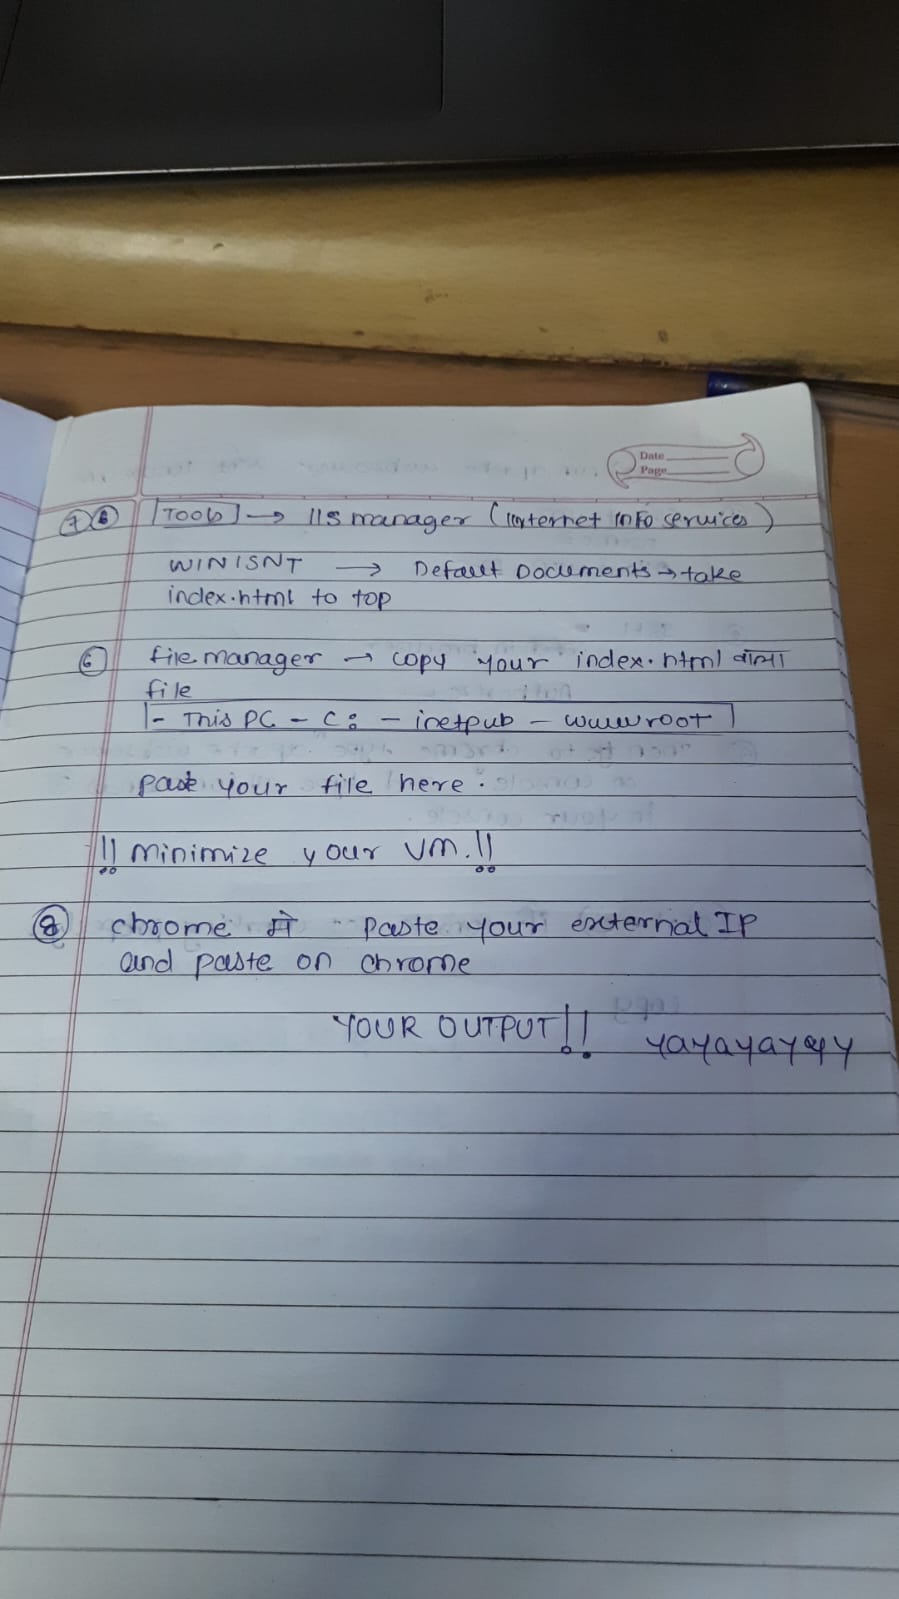 Date
Page
7 8 | TOOLS | → IIS manager (Internet Info services)
WINISNT → Default Documents → take
index.html to top
6 file manager → copy your index.html वाला
file
|- This PC - C: - inetpub - wwwroot |
paste your file here.
!! minimize your VM. !!
8 chrome मे paste your external IP
and paste on chrome
YOUR OUTPUT!! yayayayayy